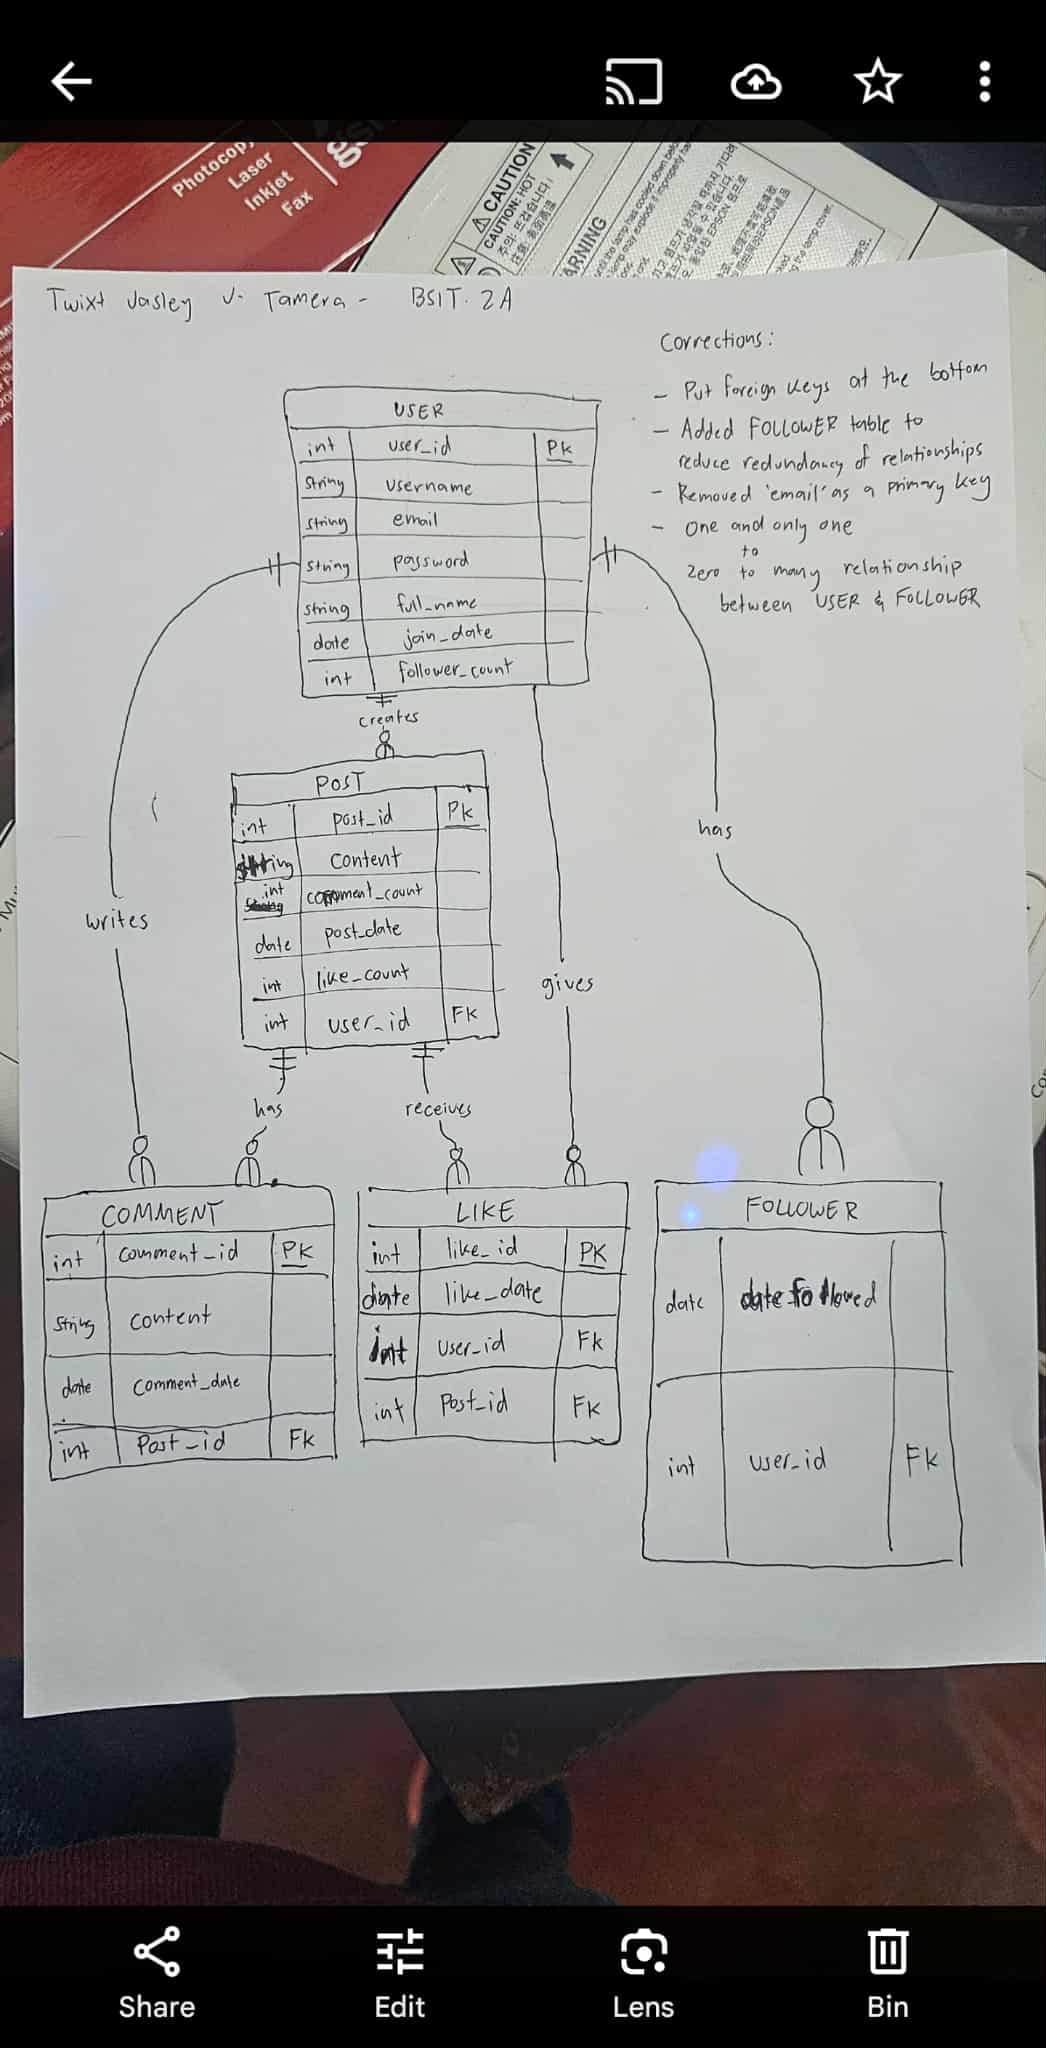 Photocopy,
Laser
Inkjet
Fax
CAUTION
CAUTION: HOT
WARNING
Twixt Jasley V. Tamera - BSIT. 2A
Corrections:
- Put foreign keys at the bottom
- Added FOLLOWER table to
reduce redundancy of relationships
- Removed 'email' as a primary key
- One and only one
to
Zero to many relationship
between USER & FOLLOWER
USER
int user_id PK
String username
string email
String password
string full_name
date join_date
int follower_count
creates
POST
int post_id PK
string content
int comment_count
date post_date
int like_count
int user_id FK
writes
has
gives
has
receives
COMMENT
int comment_id PK
String content
date comment_date
int Post_id FK
LIKE
int like_id PK
date like_date
int user_id FK
int Post_id FK
FOLLOWER
date date followed
int user_id FK
Share
Edit
Lens
Bin